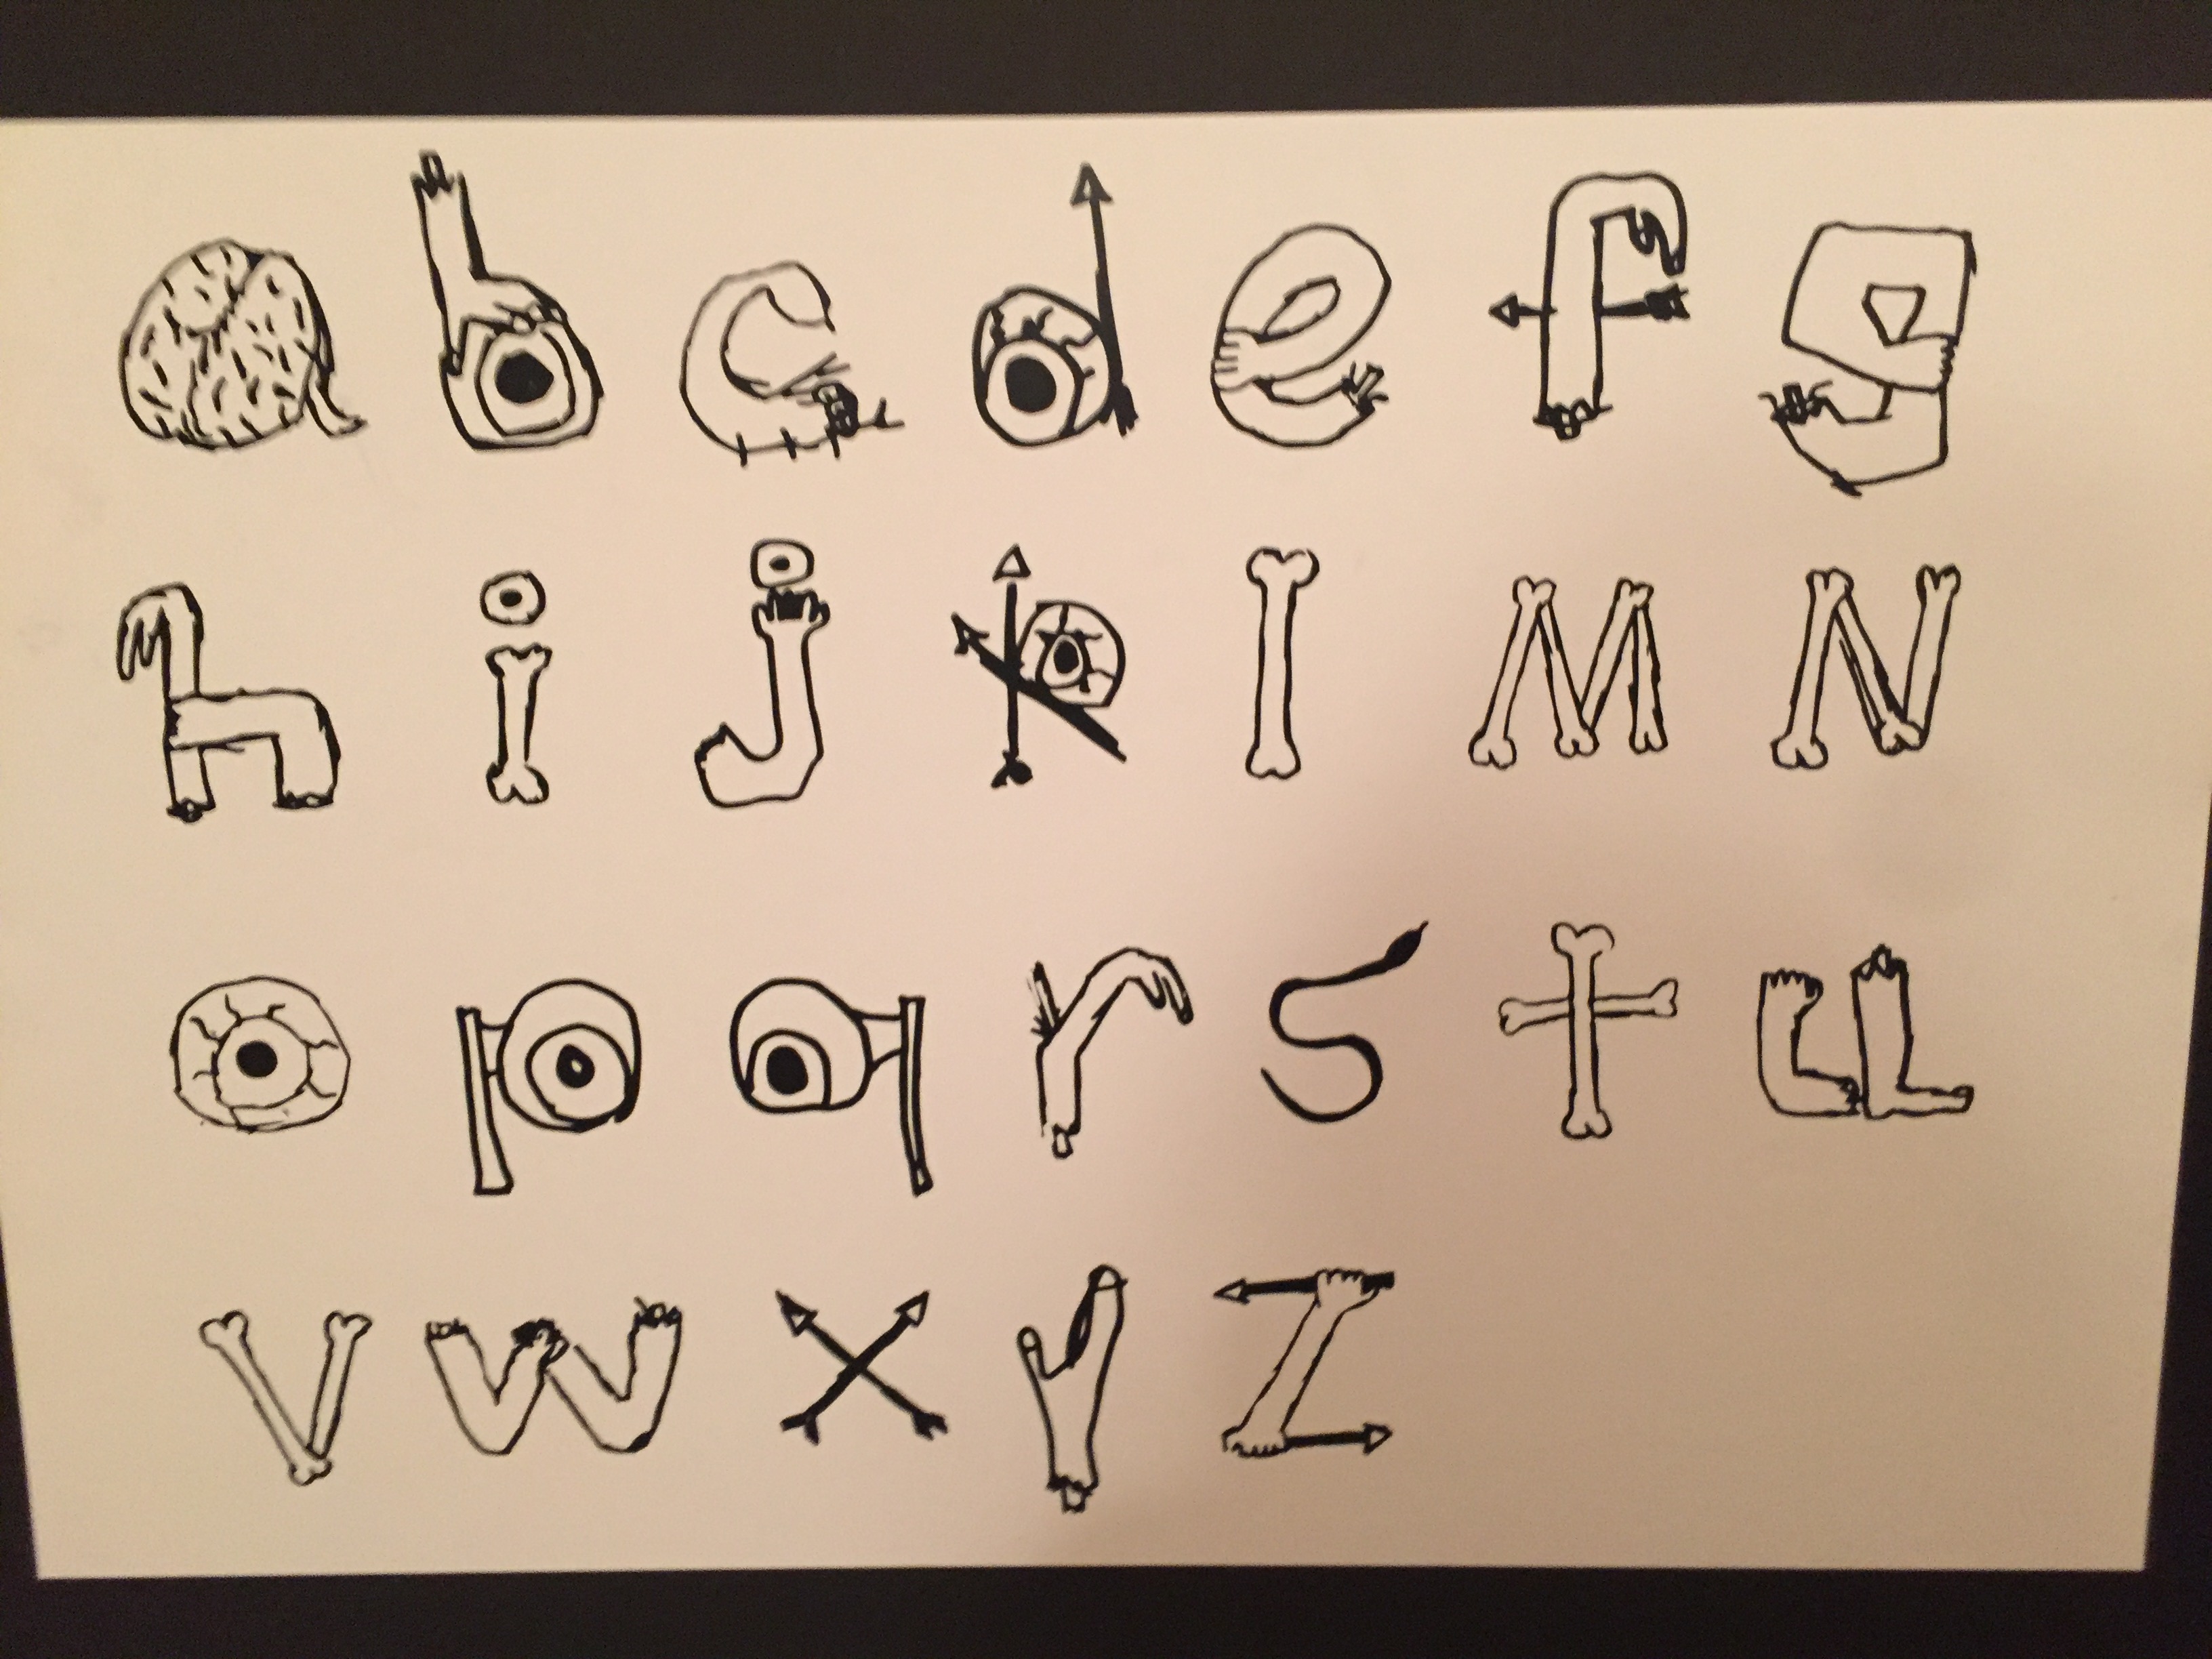 a b c d e f g
h i j k l M N
o p q r s t u
v w x y z